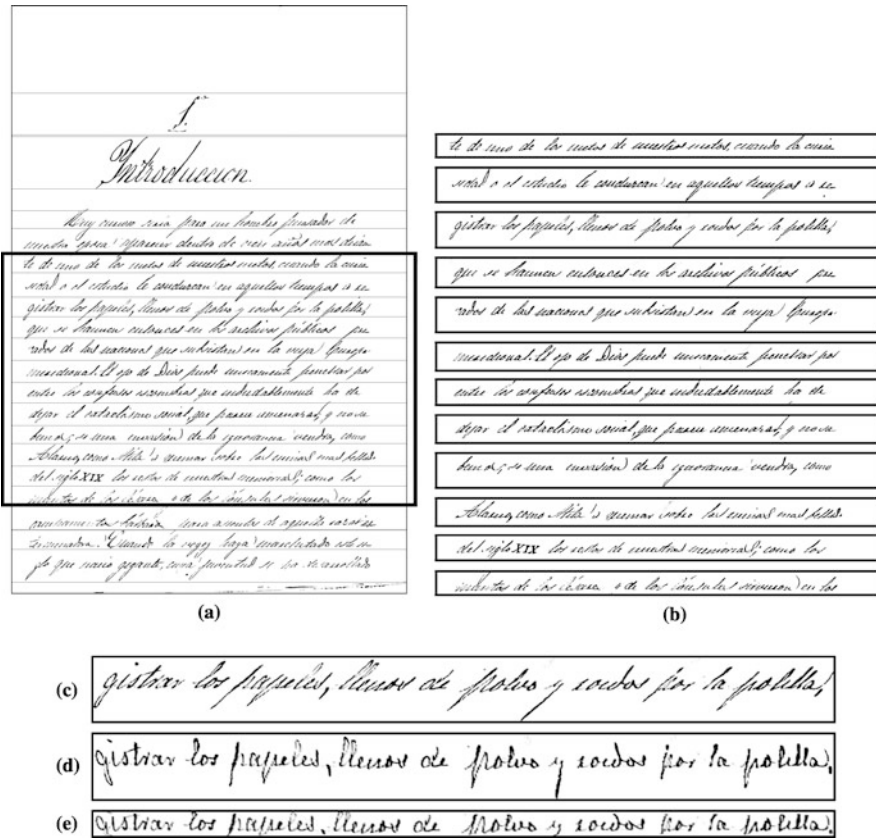 1.
Introduccion.
Muy curioso seria para un hombre pensador de
nuestra epoca aparecer dentro de cien años mas
te de uno de los nietos de nuestros nietos, cuando la curio
sidad o el estudio le conduzcan en aquellos tiempos á re
gistrar los papeles, llenos de polvo y roidos por la polilla,
que se hacinen entonces en los archivos públicos
rados de las naciones que subsistan en la vieja Europa
meridional. El ojo de Dios puede unicamente penetrar por
entre los confusos escombros que indudablemente ha de
dejar el cataclismo social, que parece amenazar, y no sa
si una invasion de la ignorancia vendra, como
como Atila á
del siglo XIX los restos de nuestras como los
de los ó de los en los
para asuntos de aquella
Cuando la haya
glo que nacio gigante, cuya juventud se ha desarrollado
(a)
te de uno de los nietos de nuestros nietos, cuando la curio
sidad o el estudio le conduzcan en aquellos tiempos á re
gistrar los papeles, llenos de polvo y roidos por la polilla,
que se hacinen entonces en los archivos públicos
rados de las naciones que subsistan en la vieja Europa
meridional. El ojo de Dios puede unicamente penetrar por
entre los confusos escombros que indudablemente ha de
dejar el cataclismo social, que parece amenazar, y no sa
si una invasion de la ignorancia vendra, como
como Atila á
del siglo XIX los restos de nuestras como los
de los ó de los en los
(b)
(c) gistrar los papeles, llenos de polvo y roidos por la polilla,
(d) gistrar los papeles, llenos de polvo y roidos por la polilla,
(e) gistrar los papeles, llenos de polvo y roidos por la polilla,